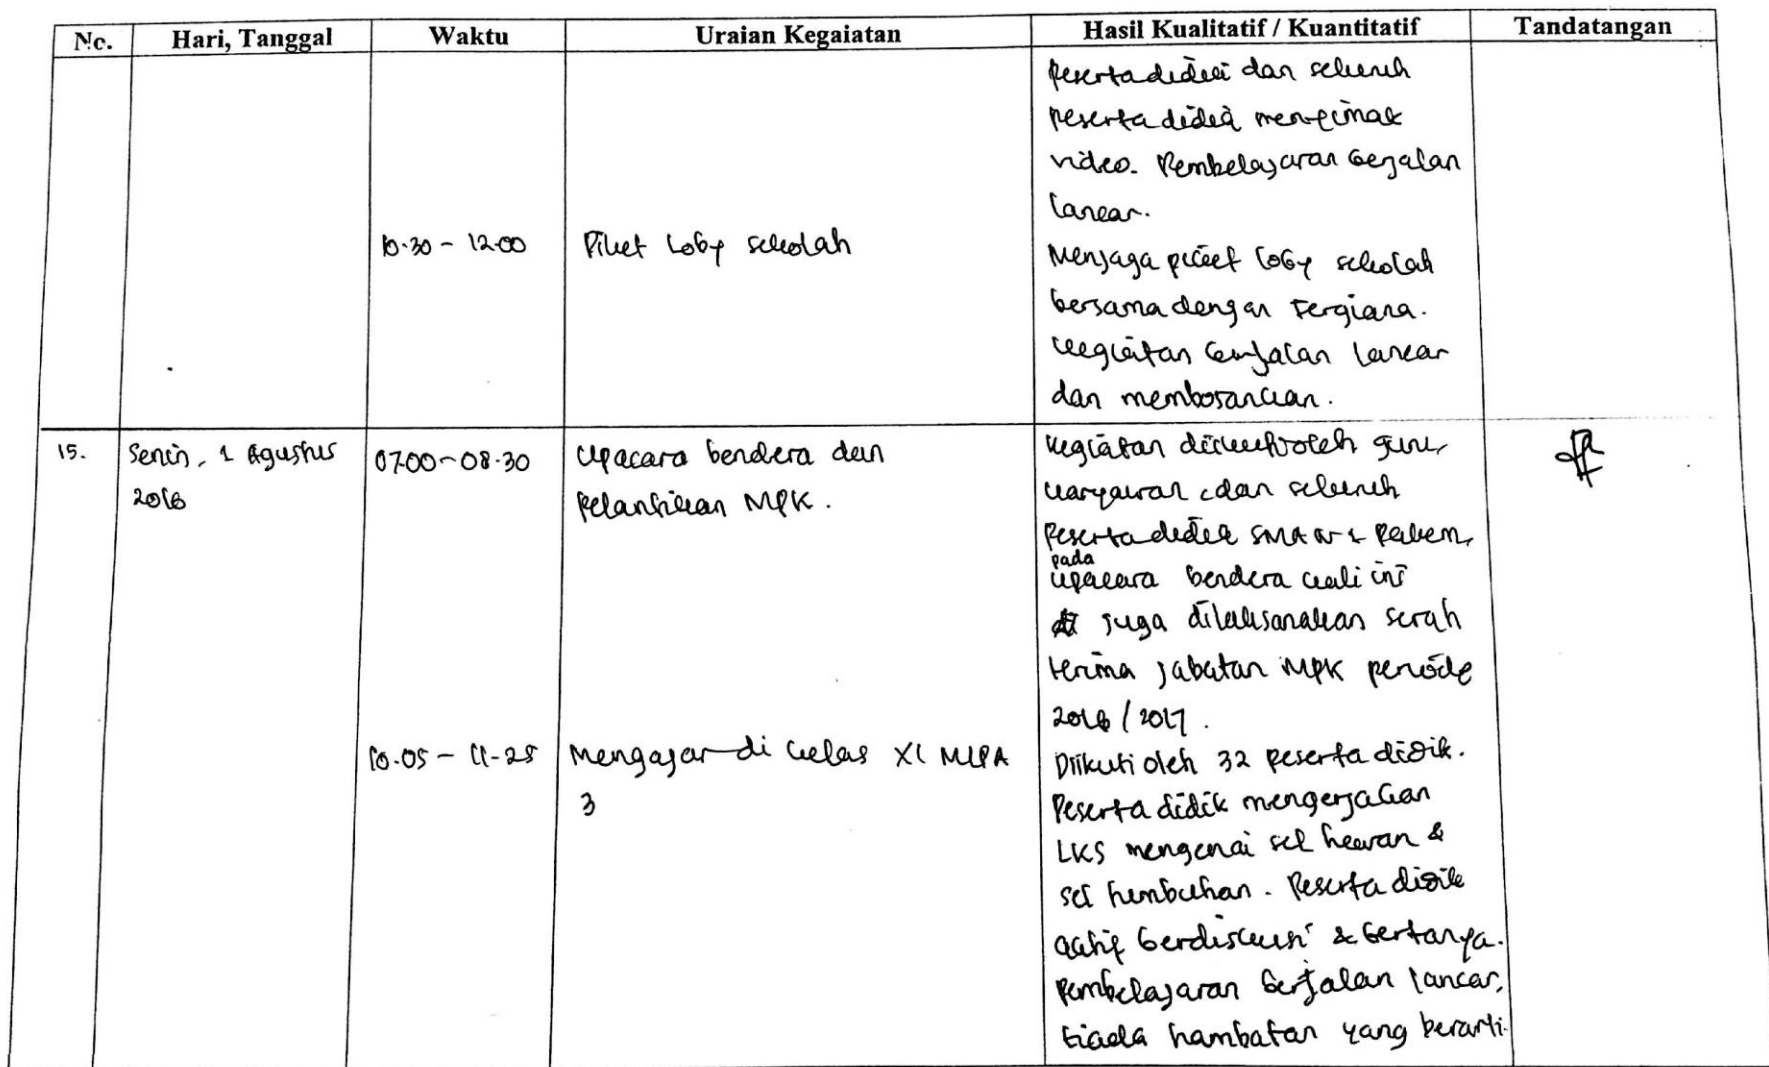 No. Hari, Tanggal Waktu Uraian Kegaiatan Hasil Kualitatif / Kuantitatif Tandatangan
peserta didik dan seluruh
peserta didik menyimak
video. Pembelajaran berjalan
lancar.
10.30 - 12.00 Piket Loby sekolah Menjaga piket loby sekolah
bersama dengan Fergiana.
Kegiatan berjalan lancar
dan membosankan.
15. Senin, 1 Agustus 07.00 - 08.30 Upacara bendera dan Kegiatan diikuti oleh guru,
2016 Pelantikan MPK. karyawan, dan seluruh
Peserta didik SMA N 1 Pakem,
pada
upacara bendera kali ini
juga dilaksanakan serah
terima jabatan MPK periode
2016 / 2017.
10.05 - 11.25 Mengajar di kelas XI MIPA Diikuti oleh 32 peserta didik.
3 Peserta didik mengerjakan
LKS mengenai sel hewan &
sel tumbuhan. Peserta didik
aktif berdiskusi & bertanya.
Pembelajaran berjalan lancar,
tiada hambatan yang berarti.